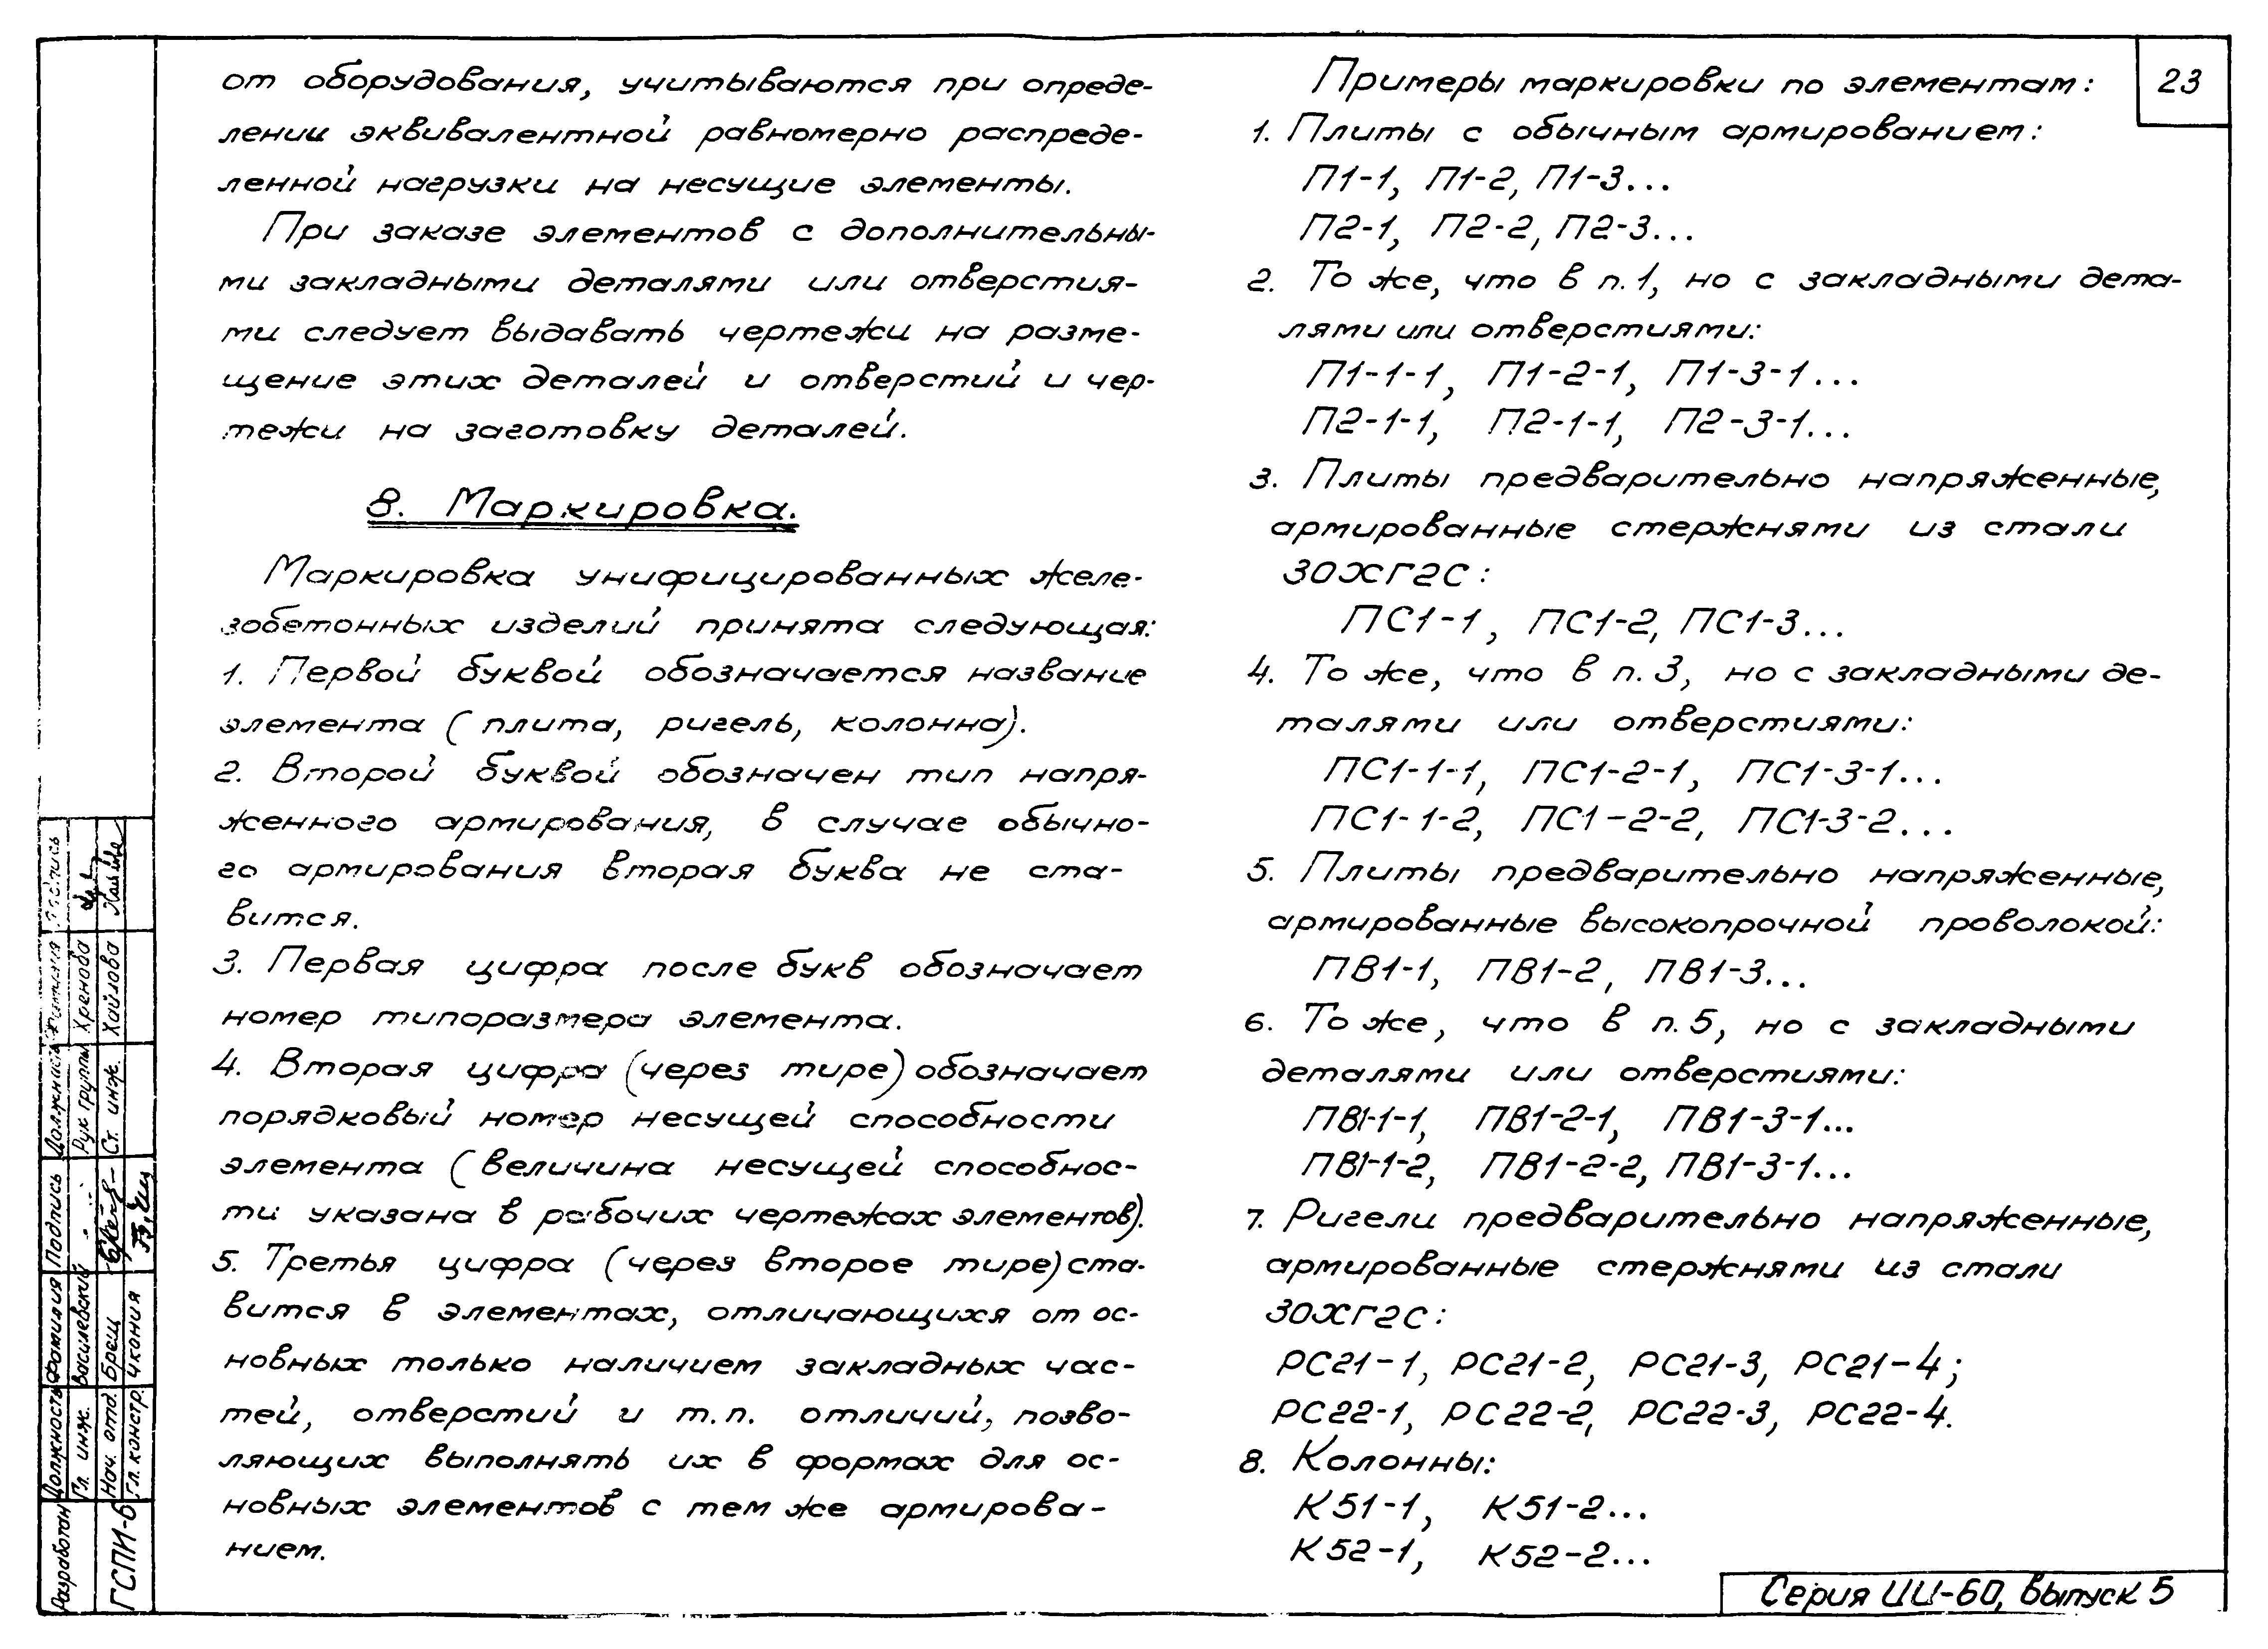 от оборудования, учитываются при опреде-
лении эквивалентной равномерно распреде-
ленной нагрузки на несущие элементы.
При заказе элементов с дополнительны-
ми закладными деталями или отверстия-
ми следует выдавать чертежи на разме-
щение этих деталей и отверстий и чер-
тежи на заготовку деталей.
8. Маркировка.
Маркировка унифицированных желе-
зобетонных изделий принята следующая:
1. Первой буквой обозначается название
элемента (плита, ригель, колонна).
2. Второй буквой обозначен тип напря-
женного армирования, в случае обычно-
го армирования вторая буква не ста-
вится.
3. Первая цифра после букв обозначает
номер типоразмера элемента.
4. Вторая цифра (через тире) обозначает
порядковый номер несущей способности
элемента (величина несущей способнос-
ти указана в рабочих чертежах элементов).
5. Третья цифра (через второе тире) ста-
вится в элементах, отличающихся от ос-
новных только наличием закладных час-
тей, отверстий и т.п. отличий, позво-
ляющих выполнять их в формах для ос-
новных элементов с тем же армирова-
нием.
23
Примеры маркировки по элементам:
1. Плиты с обычным армированием:
П1-1, П1-2, П1-3...
П2-1, П2-2, П2-3...
2. То же, что в п.1, но с закладными дета-
лями или отверстиями:
П1-1-1, П1-2-1, П1-3-1...
П2-1-1, П2-1-1, П2-3-1...
3. Плиты предварительно напряженные,
армированные стержнями из стали
30ХГ2С:
ПС1-1, ПС1-2, ПС1-3...
4. То же, что в п.3, но с закладными де-
талями или отверстиями:
ПС1-1-1, ПС1-2-1, ПС1-3-1...
ПС1-1-2, ПС1-2-2, ПС1-3-2...
5. Плиты предварительно напряженные,
армированные высокопрочной проволокой:
ПВ1-1, ПВ1-2, ПВ1-3...
6. То же, что в п.5, но с закладными
деталями или отверстиями:
ПВ1-1-1, ПВ1-2-1, ПВ1-3-1...
ПВ1-1-2, ПВ1-2-2, ПВ1-3-1...
7. Ригели предварительно напряженные,
армированные стержнями из стали
30ХГ2С:
РС21-1, РС21-2, РС21-3, РС21-4;
РС22-1, РС22-2, РС22-3, РС22-4.
8. Колонны:
К51-1, К51-2...
К52-1, К52-2...
Серия ИИ-60, Выпуск 5
Разработан
ГСПИ-6
Должность Фамилия Подпись Должность Фамилия Подпись
Гл. инж. Василевский Рук группы Хренова
Нач. отд. Брещ Ст. инж. Хайлова
Гл. констр. Чкония